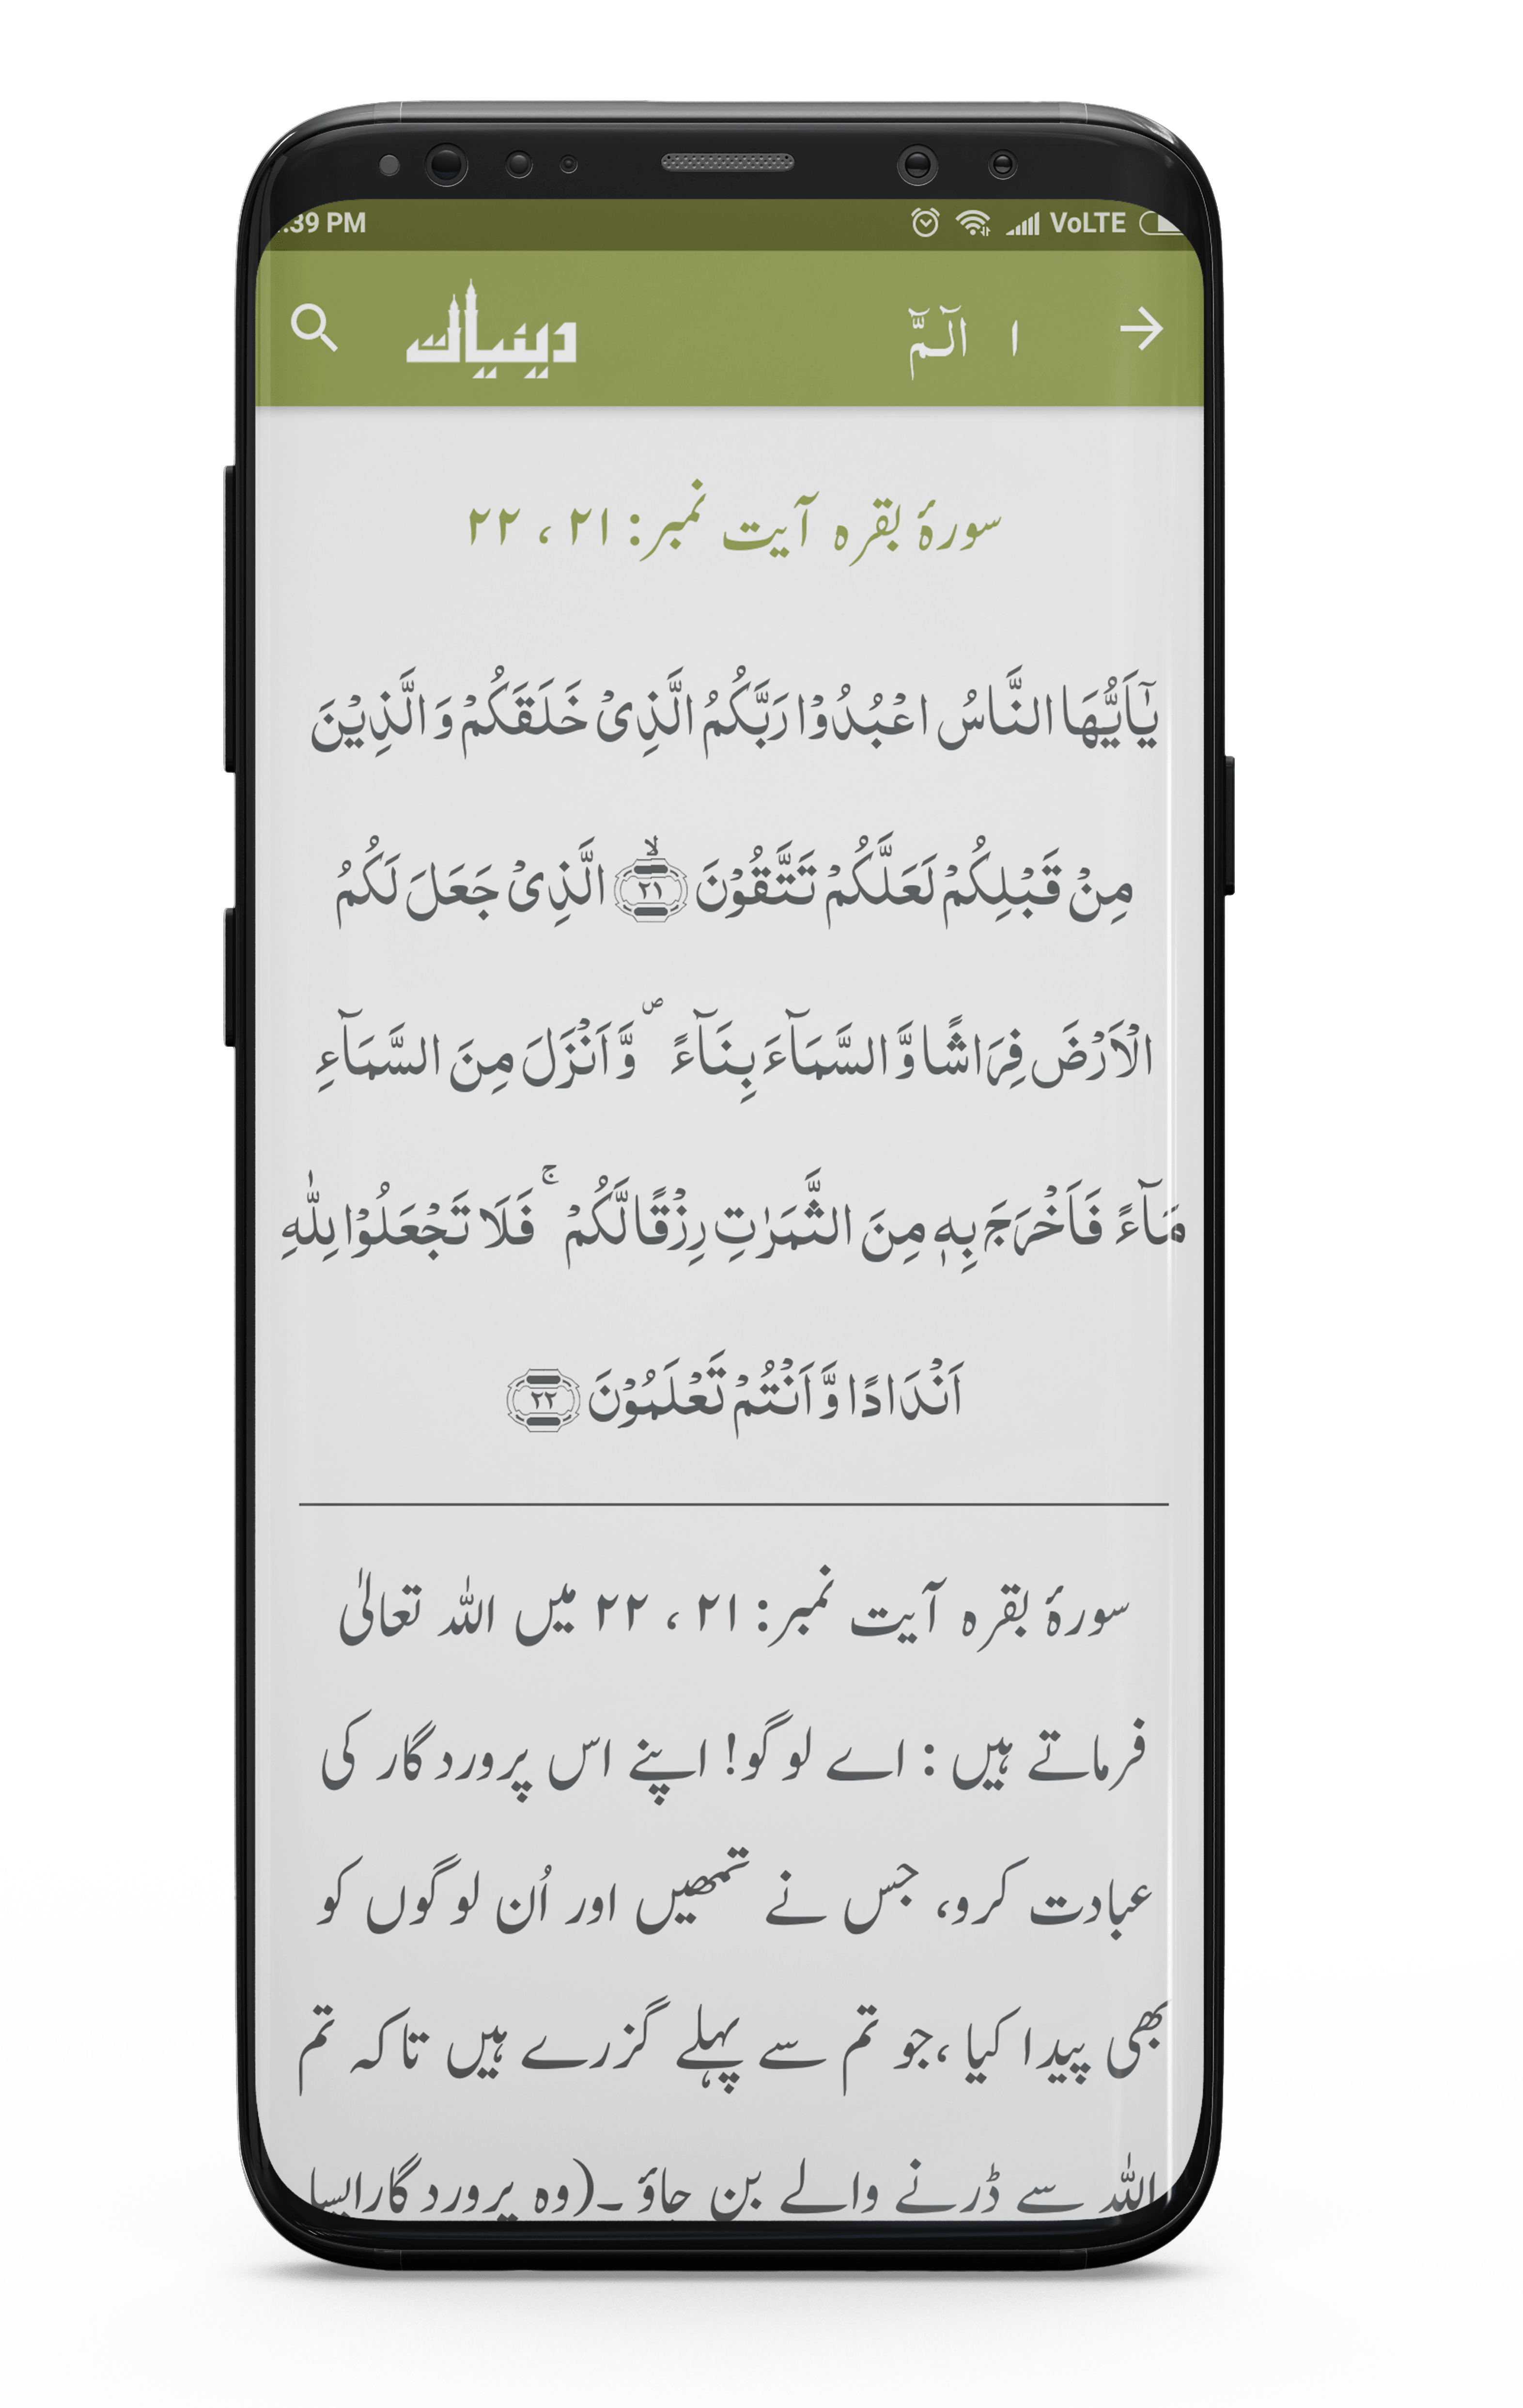 :39 PM VoLTE
دینیات ١ الٓمّٓ
سورۂ بقرہ آیت نمبر: ۲۱ ، ۲۲
يٰٓاَيُّهَا النَّاسُ اعْبُدُوْا رَبَّكُمُ الَّذِىْ خَلَقَكُمْ وَ الَّذِيْنَ
مِنْ قَبْلِكُمْ لَعَلَّكُمْ تَتَّقُوْنَ ۙ‏﴿۲۱﴾ الَّذِىْ جَعَلَ لَكُمُ
الْاَرْضَ فِرَاشًا وَّ السَّمَآءَ بِنَآءً ۖ وَّ اَنْزَلَ مِنَ السَّمَآءِ
مَآءً فَاَخْرَجَ بِهٖ مِنَ الثَّمَرٰتِ رِزْقًا لَّكُمْ ۚ فَلَا تَجْعَلُوْا لِلّٰهِ
اَنْدَادًا وَّ اَنْتُمْ تَعْلَمُوْنَ ﴿۲۲﴾
سورۂ بقرہ آیت نمبر: ۲۱ ، ۲۲ میں اللہ تعالیٰ
فرماتے ہیں : اے لوگو! اپنے اس پروردگار کی
عبادت کرو، جس نے تمھیں اور اُن لوگوں کو
بھی پیدا کیا ،جو تم سے پہلے گزرے ہیں تاکہ تم
اللہ سے ڈرنے والے بن جاؤ ۔(وہ پروردگار ایسا